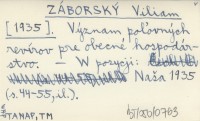 ZÁBORSKÝ Viliam
[1935]. Význam poľovných
revírov pre obecné hospodár-
stvo. — W pozycji:
Naša 1935
(s. 44-55, il.).
TANAP, TM